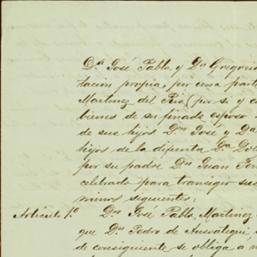 Dn. José Pablo y Dn. Gregorio
tacion propia, por una parte
Martinez del Rio (por si y c
bienes de su finado esposo
de sus hijos Dn. José y Da.
hijos de la difunta Da. Dol
por su padre Dn. Juan
celebrado para transigir sus
minos siguientes.
Artículo 1o. Dn. José Pablo Martinez
que Dn. Pedro de Ansoátegui
de consiguiente se obliga a